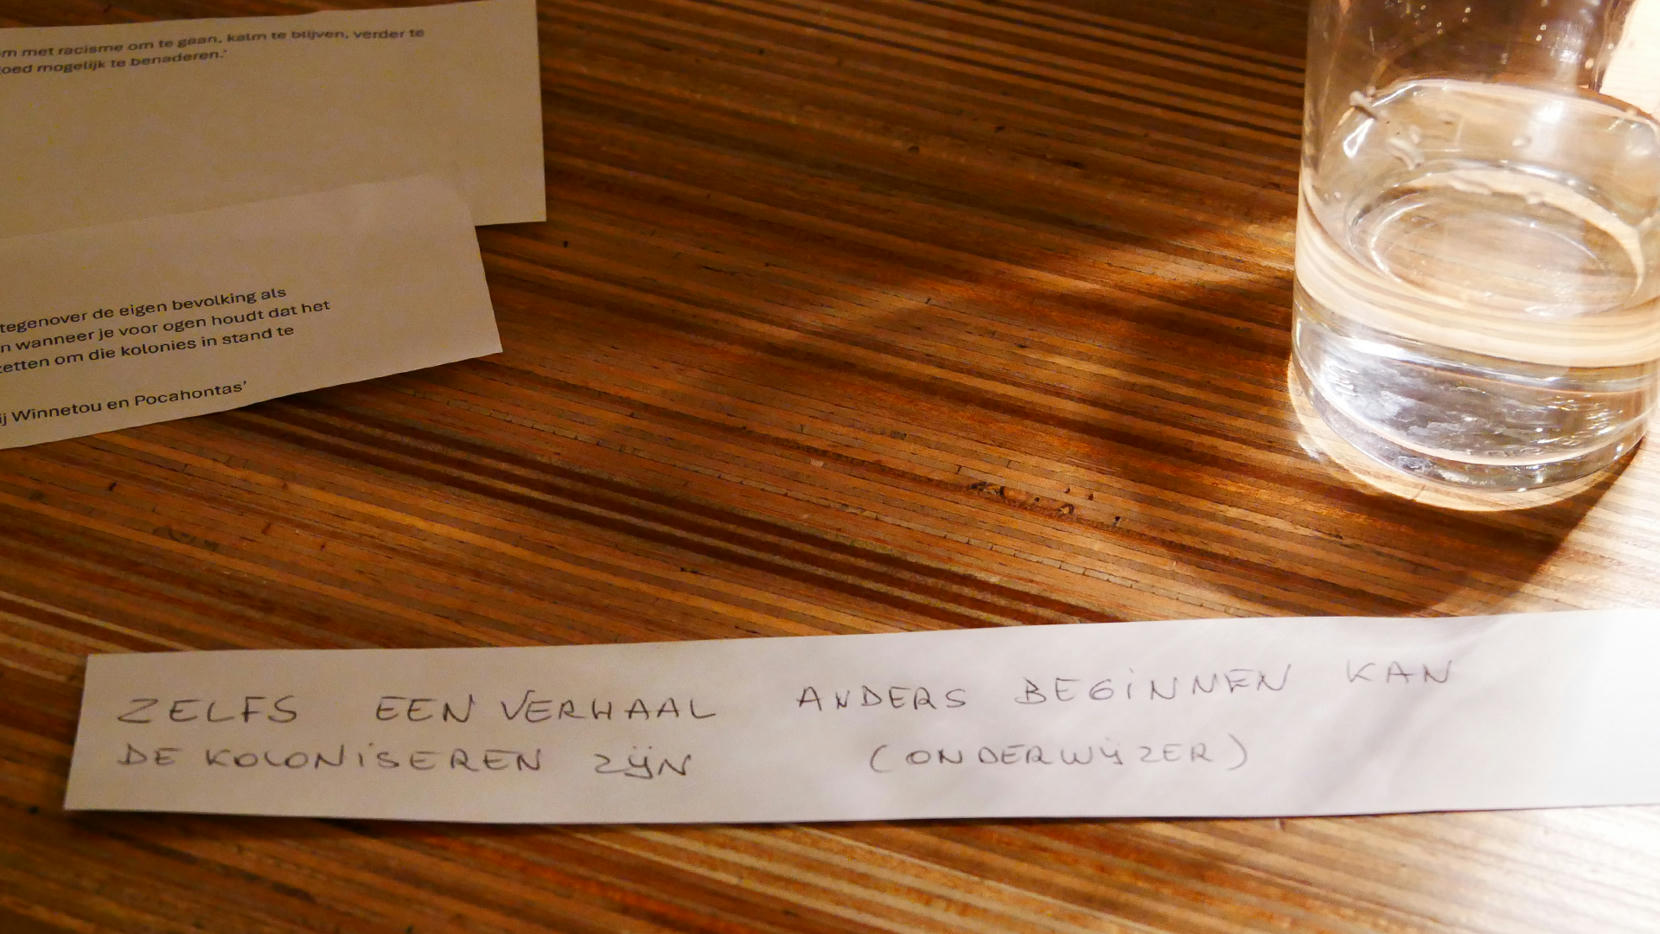 m met racisme om te gaan, kalm te blijven, verder te
oed mogelijk te benaderen.'
tegenover de eigen bevolking als
n wanneer je voor ogen houdt dat het
etten om die kolonies in stand te
ij Winnetou en Pocahontas'
ZELFS EEN VERHAAL ANDERS BEGINNEN KAN
DE KOLONISEREN ZIJN (ONDERWIJZER)